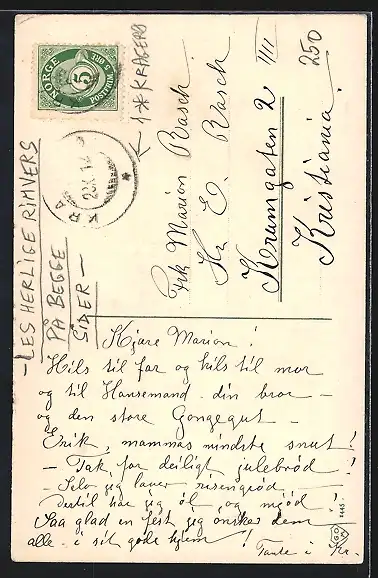 NORGE
5
POSTFRIM. 5 ØRE
1 stk KRAGERØ
KRA
23.X.14
250
1/11
Frk Marion Rasch
Hr. E. Rasch
Krumgaten 2
Kristiania.
- LES HERLIGE RIMVERS
PÅ BEGGE
SIDER -
Kjære Marion!
Hils til far og hils til mor
og til Hansemand din bror -
og den store Gongegut -
Erik, mammas mindste snut!
- Tak for deiligt julebrød!
- Selv jeg laver risengrød.
Dertil har jeg øl og mjød!
Saa glad en fest jeg ønsker dem
alle i sit gode hjem!
Tante i Kr.